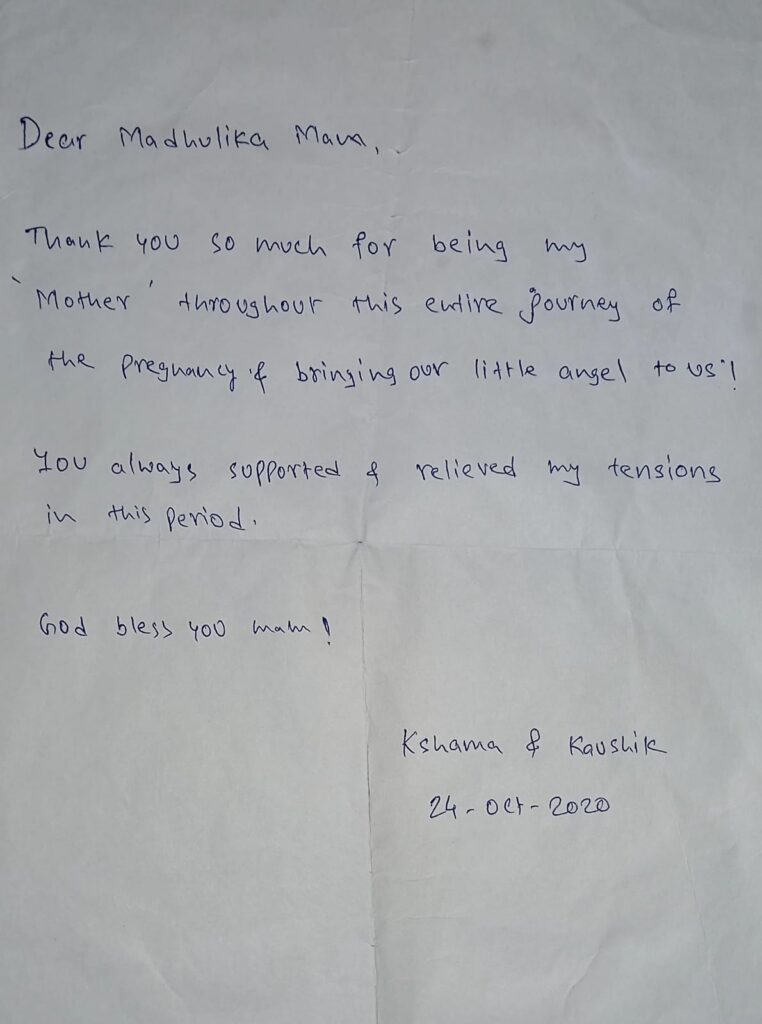 Dear Madhulika Mam,
Thank you so much for being my
'Mother' throughout this entire journey of
the pregnancy & bringing our little angel to us!
You always supported & relieved my tensions
in this period.
God bless you mam!
Kshama & Kaushik
24-Oct-2020